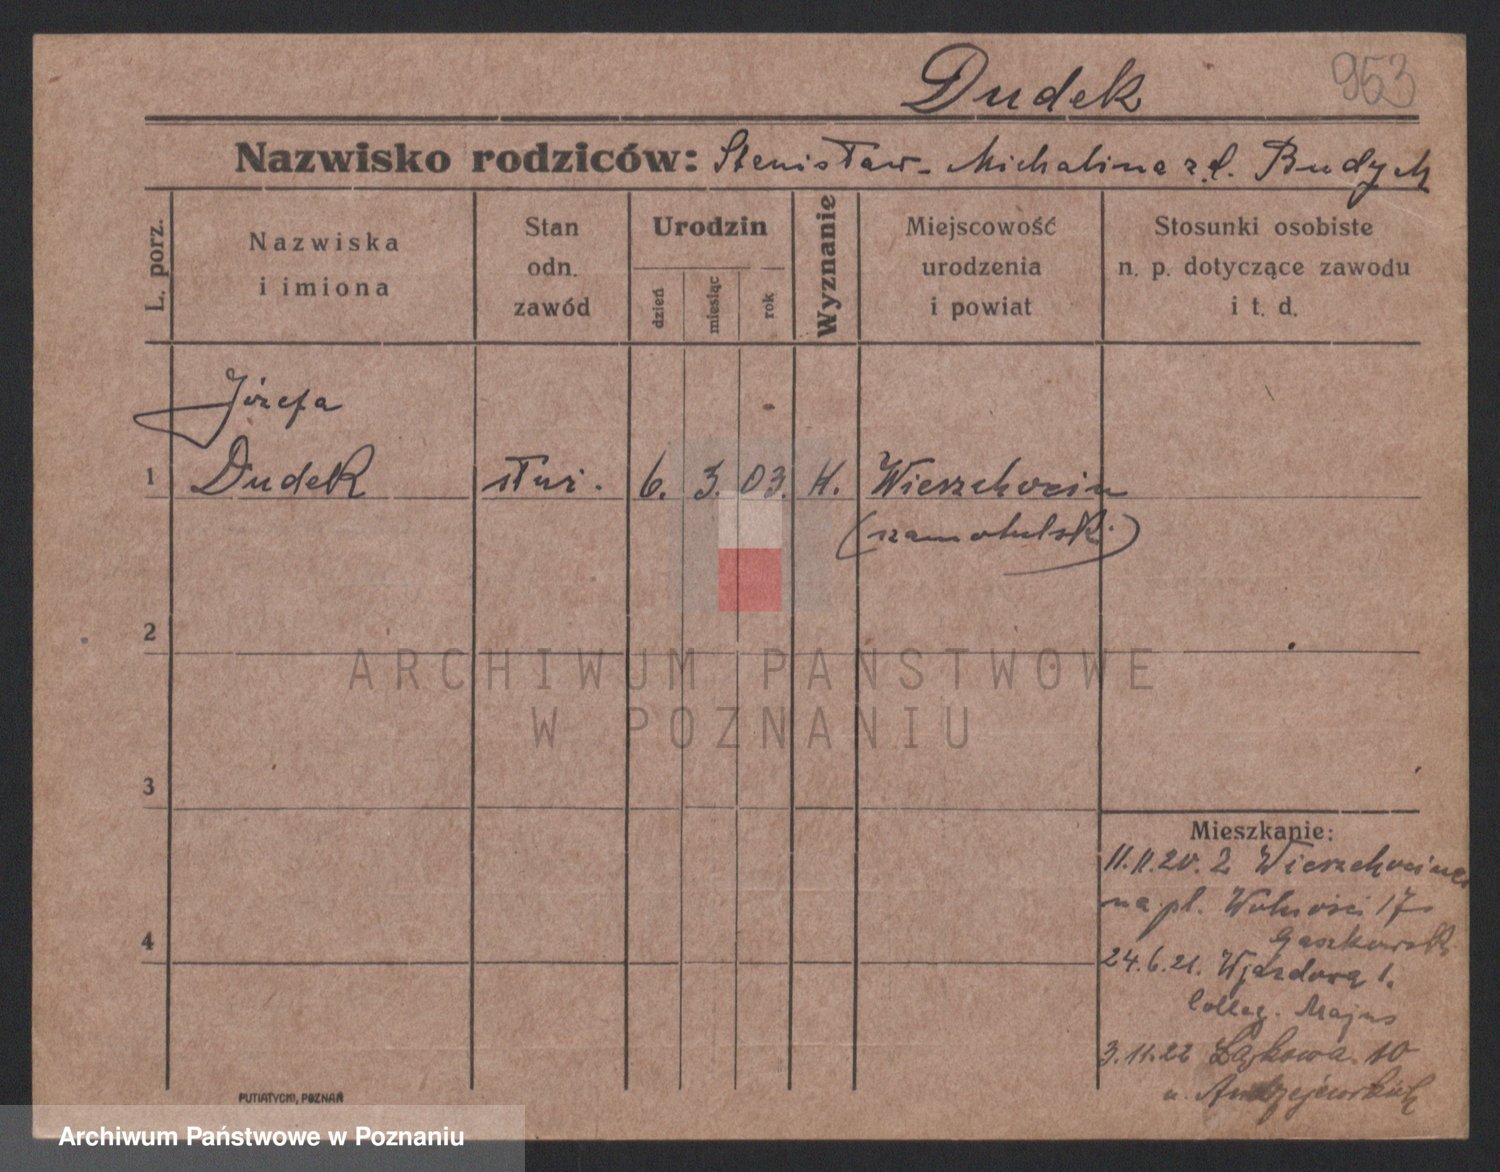 Dudek 953
Nazwisko rodziców: Stanisław - Michalina z d. Budych
L. porz.
Nazwiska
i imiona
Stan
odn.
zawód
Urodzin
dzień
miesiąc
rok
Wyznanie
Miejscowość
urodzenia
i powiat
Stosunki osobiste
n. p. dotyczące zawodu
i t. d.
Józefa
1 Dudek służ. 6. 3. 03. K. Wierzchocin
(szamotulski)
2
ARCHIWUM PAŃSTWOWE
W POZNANIU
3
Mieszkanie:
11.11.20. z Wierzchocina
na pl. Wolności 17
Gaszkowski
4
24.6.21. Wjazdową 1.
Colleg. Majus
3.11.22 Łąkowa 10
u. Andrzejewskich
PUTIATYCKI, POZNAŃ
Archiwum Państwowe w Poznaniu